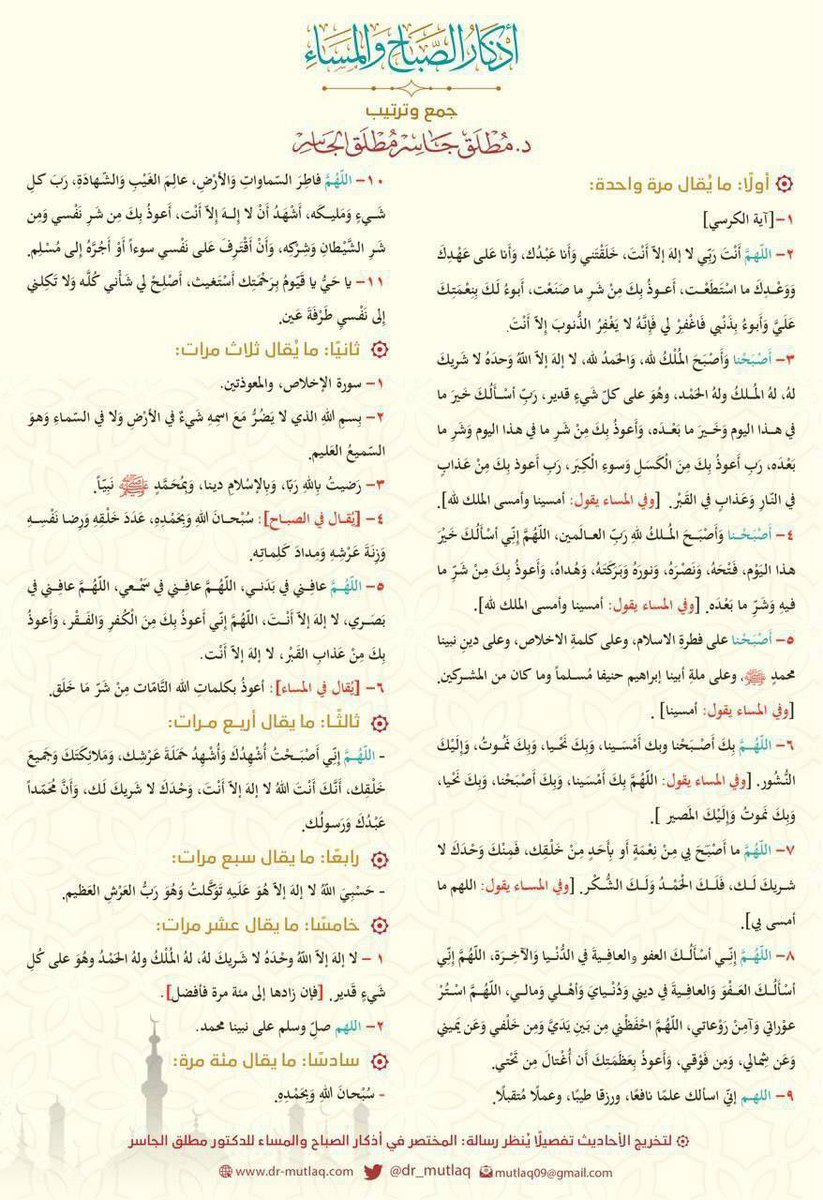 أذكار الصباح والمساء
جمع وترتيب
د. مُطلَق جاسِر مُطلَق الجاسِر
أولًا: ما يُقال مرة واحدة:
١- [آية الكرسي]
٢- اللّهمَّ أَنْتَ رَبِّي لا إلهَ إلاّ أَنْتَ، خَلَقْتَني وَأنا عَبْدُك، وَأنا عَلى عَهْدِكَ
وَوَعْدِكَ ما اسْتَطَعْت، أَعوذُ بِكَ مِنْ شَرِ ما صَنَعْت، أَبوءُ لَكَ بِنِعْمَتِكَ
عَلَيَّ وَأَبوءُ بِذَنْبي فَاغْفِرْ لي فَإِنَّهُ لا يَغْفِرُ الذُّنوبَ إِلاّ أَنْتَ.
٣- أَصْبَحْنا وَأَصْبَحَ المُلْكُ لله، وَالحَمدُ لله، لا إلهَ إلاّ اللهُ وَحدَهُ لا شَريكَ
لهُ، لهُ المُلكُ ولهُ الحَمْد، وهُوَ على كلّ شَيءٍ قدير، رَبِّ أسْأَلُكَ خَيرَ ما
في هذا اليوم وَخَيرَ ما بَعْدَه، وَأَعوذُ بِكَ مِنْ شَرِ ما في هذا اليوم وَشَرِ ما
بَعْدَه، رَبِ أَعوذُ بِكَ مِنَ الكَسَلِ وَسوءِ الكِبَر، رَبِ أعوذ بكَ مِنْ عَذابٍ
في النّارِ وَعَذابٍ في القَبْر. [وفي المساء يقول: أمسينا وأمسى الملك لله].
٤- أَصْبَحْنا وَأَصْبَحَ المُلكُ للهِ رَبِّ العالَمين، اللّهُمَّ إِنِّي أَسْأَلُكَ خَيْرَ
هذا اليَوْم، فَتْحَهُ، وَنَصْرَهُ، وَنورَهُ وَبَرَكَتَهُ، وَهُداهُ، وَأَعوذُ بِكَ مِنْ شَرِّ ما
فيهِ وَشَرِّ ما بَعْدَه. [وفي المساء يقول: أمسينا وأمسى الملك لله].
٥- أَصْبَحْنا على فطرةِ الاسلام، وعلى كلمةِ الاخلاص، وعلى دينِ نبينا
محمدٍ ﷺ، وعلى ملةِ أبينا إبراهيم حنيفا مُسلماً وما كان من المشركين.
[وفي المساء يقول: أمسينا] .
٦- اللّهُمَّ بِكَ أَصْبَحْنا وبك أَمْسَينا، وَبِكَ نَحْيا، وَبِكَ نَمُوتُ، وَإِلَيْكَ
النُّشُور. [وفي المساء يقول: اللّهُمَّ بِكَ أَمْسَينا، وَبِكَ أَصْبَحْنا، وَبِكَ نَحْيا،
وَبِكَ نَموتُ وَإِلَيْكَ المَصير ].
٧- اللّهُمَّ ما أَصْبَحَ بي مِنْ نِعْمَةٍ أَو بِأَحَدٍ مِنْ خَلْقِك، فَمِنْكَ وَحْدَكَ لا
شريكَ لَك، فَلَكَ الْحَمْدُ وَلَكَ الشُّكْر. [وفي المساء يقول: اللهم ما
أمسى بي].
٨- اللّهُمَّ إِنِّي أسْأَلُكَ العفو والعافِيةَ في الدُّنْيا وَالآخِرَة، اللّهُمَّ إِنِّي
أسْأَلُكَ العَفْوَ وَالعافِيةَ في ديني وَدُنْيايَ وَأهْلي وَمالي، اللّهُمَّ اسْتُرْ
عوْراتي وَآمِنْ رَوْعاتي، اللّهُمَّ احْفَظْني مِن بَينِ يَدَيَّ وَمِن خَلْفي وَعَن يَميني
وَعَن شِمالي، وَمِن فَوْقي، وَأَعوذُ بِعَظَمَتِكَ أَن أُغْتالَ مِن تَحْتي.
٩- اللهم إنّي اسألك علمًا نافعًا، ورزقا طيبًا، وعملًا مُتقبلًا.
١٠- اللّهُمَّ فاطِرَ السّماواتِ وَالأرْضِ، عالِمَ الغَيْبِ وَالشّهادَةِ، رَبَ كلِ
شَيءٍ وَمَليكَه، أَشْهَدُ أَنْ لا إِلهَ إِلاّ أَنْت، أَعوذُ بِكَ مِن شَرِ نَفْسي وَمِن
شَرِ الشَّيْطانِ وَشِرْكِه، وَأَنْ أَقْتَرِفَ عَلى نَفْسي سوءاً أَوْ أَجُرَّهُ إِلى مُسْلِم.
١١- يا حَيُّ يا قَيّومُ بِرَحْمَتِك أَسْتَغيث، أَصْلِحْ لي شَأْني كُلَّه وَلا تَكِلني
إِلى نَفْسي طَرْفَةَ عَين.
ثانيًا: ما يُقال ثلاث مرات:
١- سورة الإخلاص، والمعوذتين.
٢- بِسمِ اللهِ الذي لا يَضُرُّ مَعَ اسمِهِ شَيءٌ في الأرْضِ وَلا في السّماءِ وَهوَ
السّميعُ العَليم.
٣- رَضيتُ بِاللهِ رَبّا، وَبِالإسْلامِ دينا، وَبِمُحَمَّدٍ ﷺ نَبيّاً.
٤- [يُقال في الصباح]: سُبْحانَ اللهِ وَبِحَمْدِه، عَدَدَ خَلْقِهِ وَرِضا نَفْسِهِ
وَزِنَةَ عَرْشِهِ وَمِدادَ كَلِماتِه.
٥- اللّهُمَّ عافِني في بَدَني، اللّهُمَّ عافِني في سَمْعي، اللّهُمَّ عافِني في
بَصَري، لا إلهَ إلاّ أَنْتَ، اللّهُمَّ إِنّي أَعوذُ بِكَ مِنَ الْكُفرِ وَالفَقْر، وَأَعوذُ
بِكَ مِنْ عَذابِ القَبْر، لا إلهَ إلاّ أَنْت.
٦- [يُقال في المساء]: أعوذُ بكلماتِ الله التَّامّات مِنْ شَرّ مَا خَلَق.
ثالثًا: ما يقال أربع مرات:
- اللّهُمَّ إِنّي أَصْبَحْتُ أُشْهِدُكَ وَأُشْهِدُ حَمَلَةَ عَرْشِك، وَمَلائِكَتَكَ وَجَميعَ
خَلْقِك، أَنَّكَ أَنْتَ اللهُ لا إلهَ إلاّ أَنْتَ، وَحْدَكَ لا شَريكَ لَك، وَأَنَّ مُحَمّداً
عَبْدُكَ وَرَسولُك.
رابعًا: ما يقال سبع مرات:
- حَسْبِيَ اللهُ لا إلهَ إلاّ هُوَ عَلَيهِ تَوَكَّلتُ وَهُوَ رَبُّ العَرْشِ العَظيم.
خامسًا: ما يقال عشر مرات:
١ - لا إلهَ إلاّ اللهُ وحْدَهُ لا شَريكَ لهُ، لهُ المُلْكُ ولهُ الحَمْدُ وهُوَ على كُلِ
شَيءٍ قَدير. [فإن زادها إلى مئة مرة فأفضل] .
٢- اللهم صلّ وسلم على نبينا محمد.
سادسًا: ما يقال مئة مرة:
- سُبْحانَ اللهِ وَبِحَمْدِهِ.
لتخريج الأحاديث تفصيلًا يُنظر رسالة: المختصر في أذكار الصباح والمساء للدكتور مطلق الجاسر
www.dr-mutlaq.com @dr_mutlaq mutlaq09@gmail.com